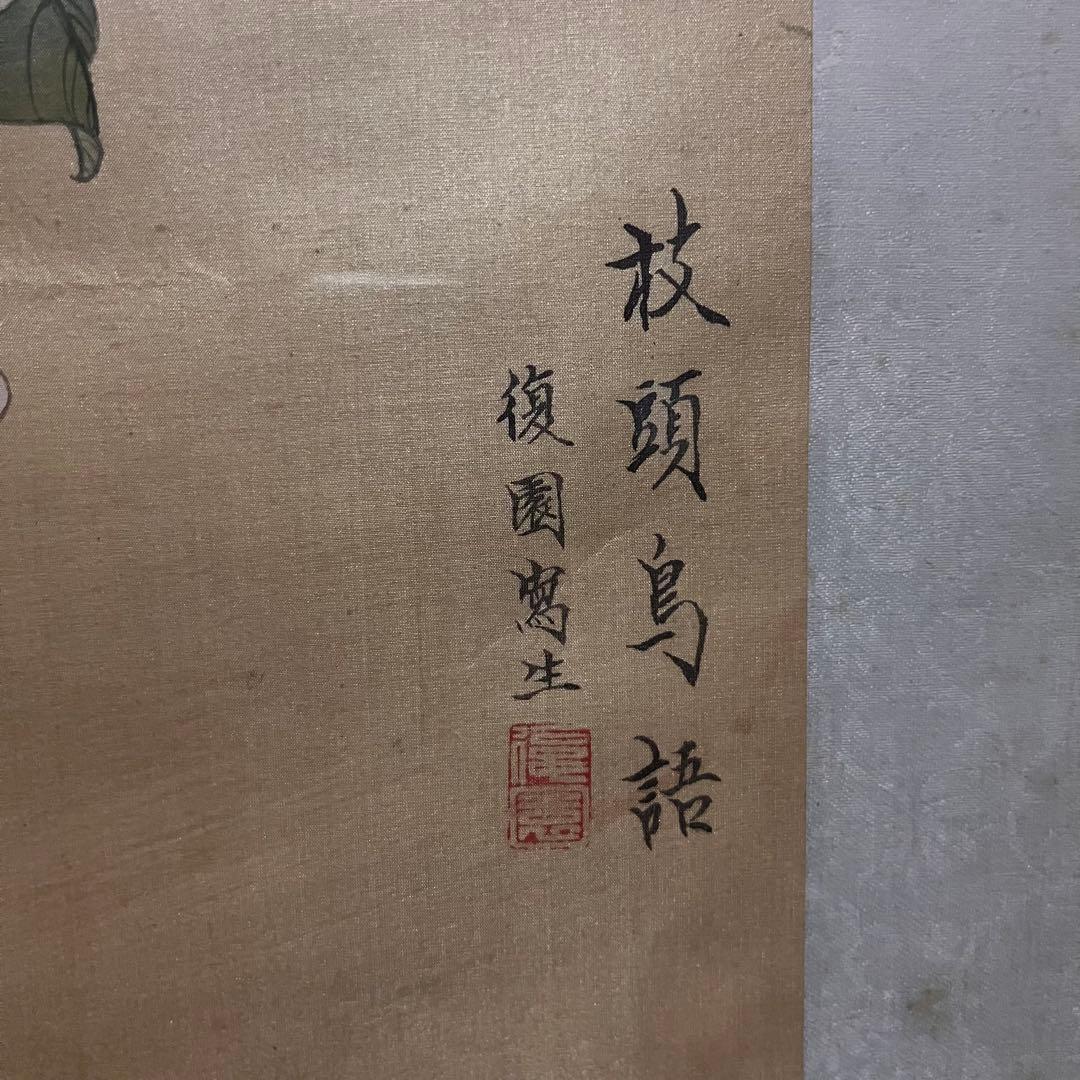 枝頭鳥語
復園寫生